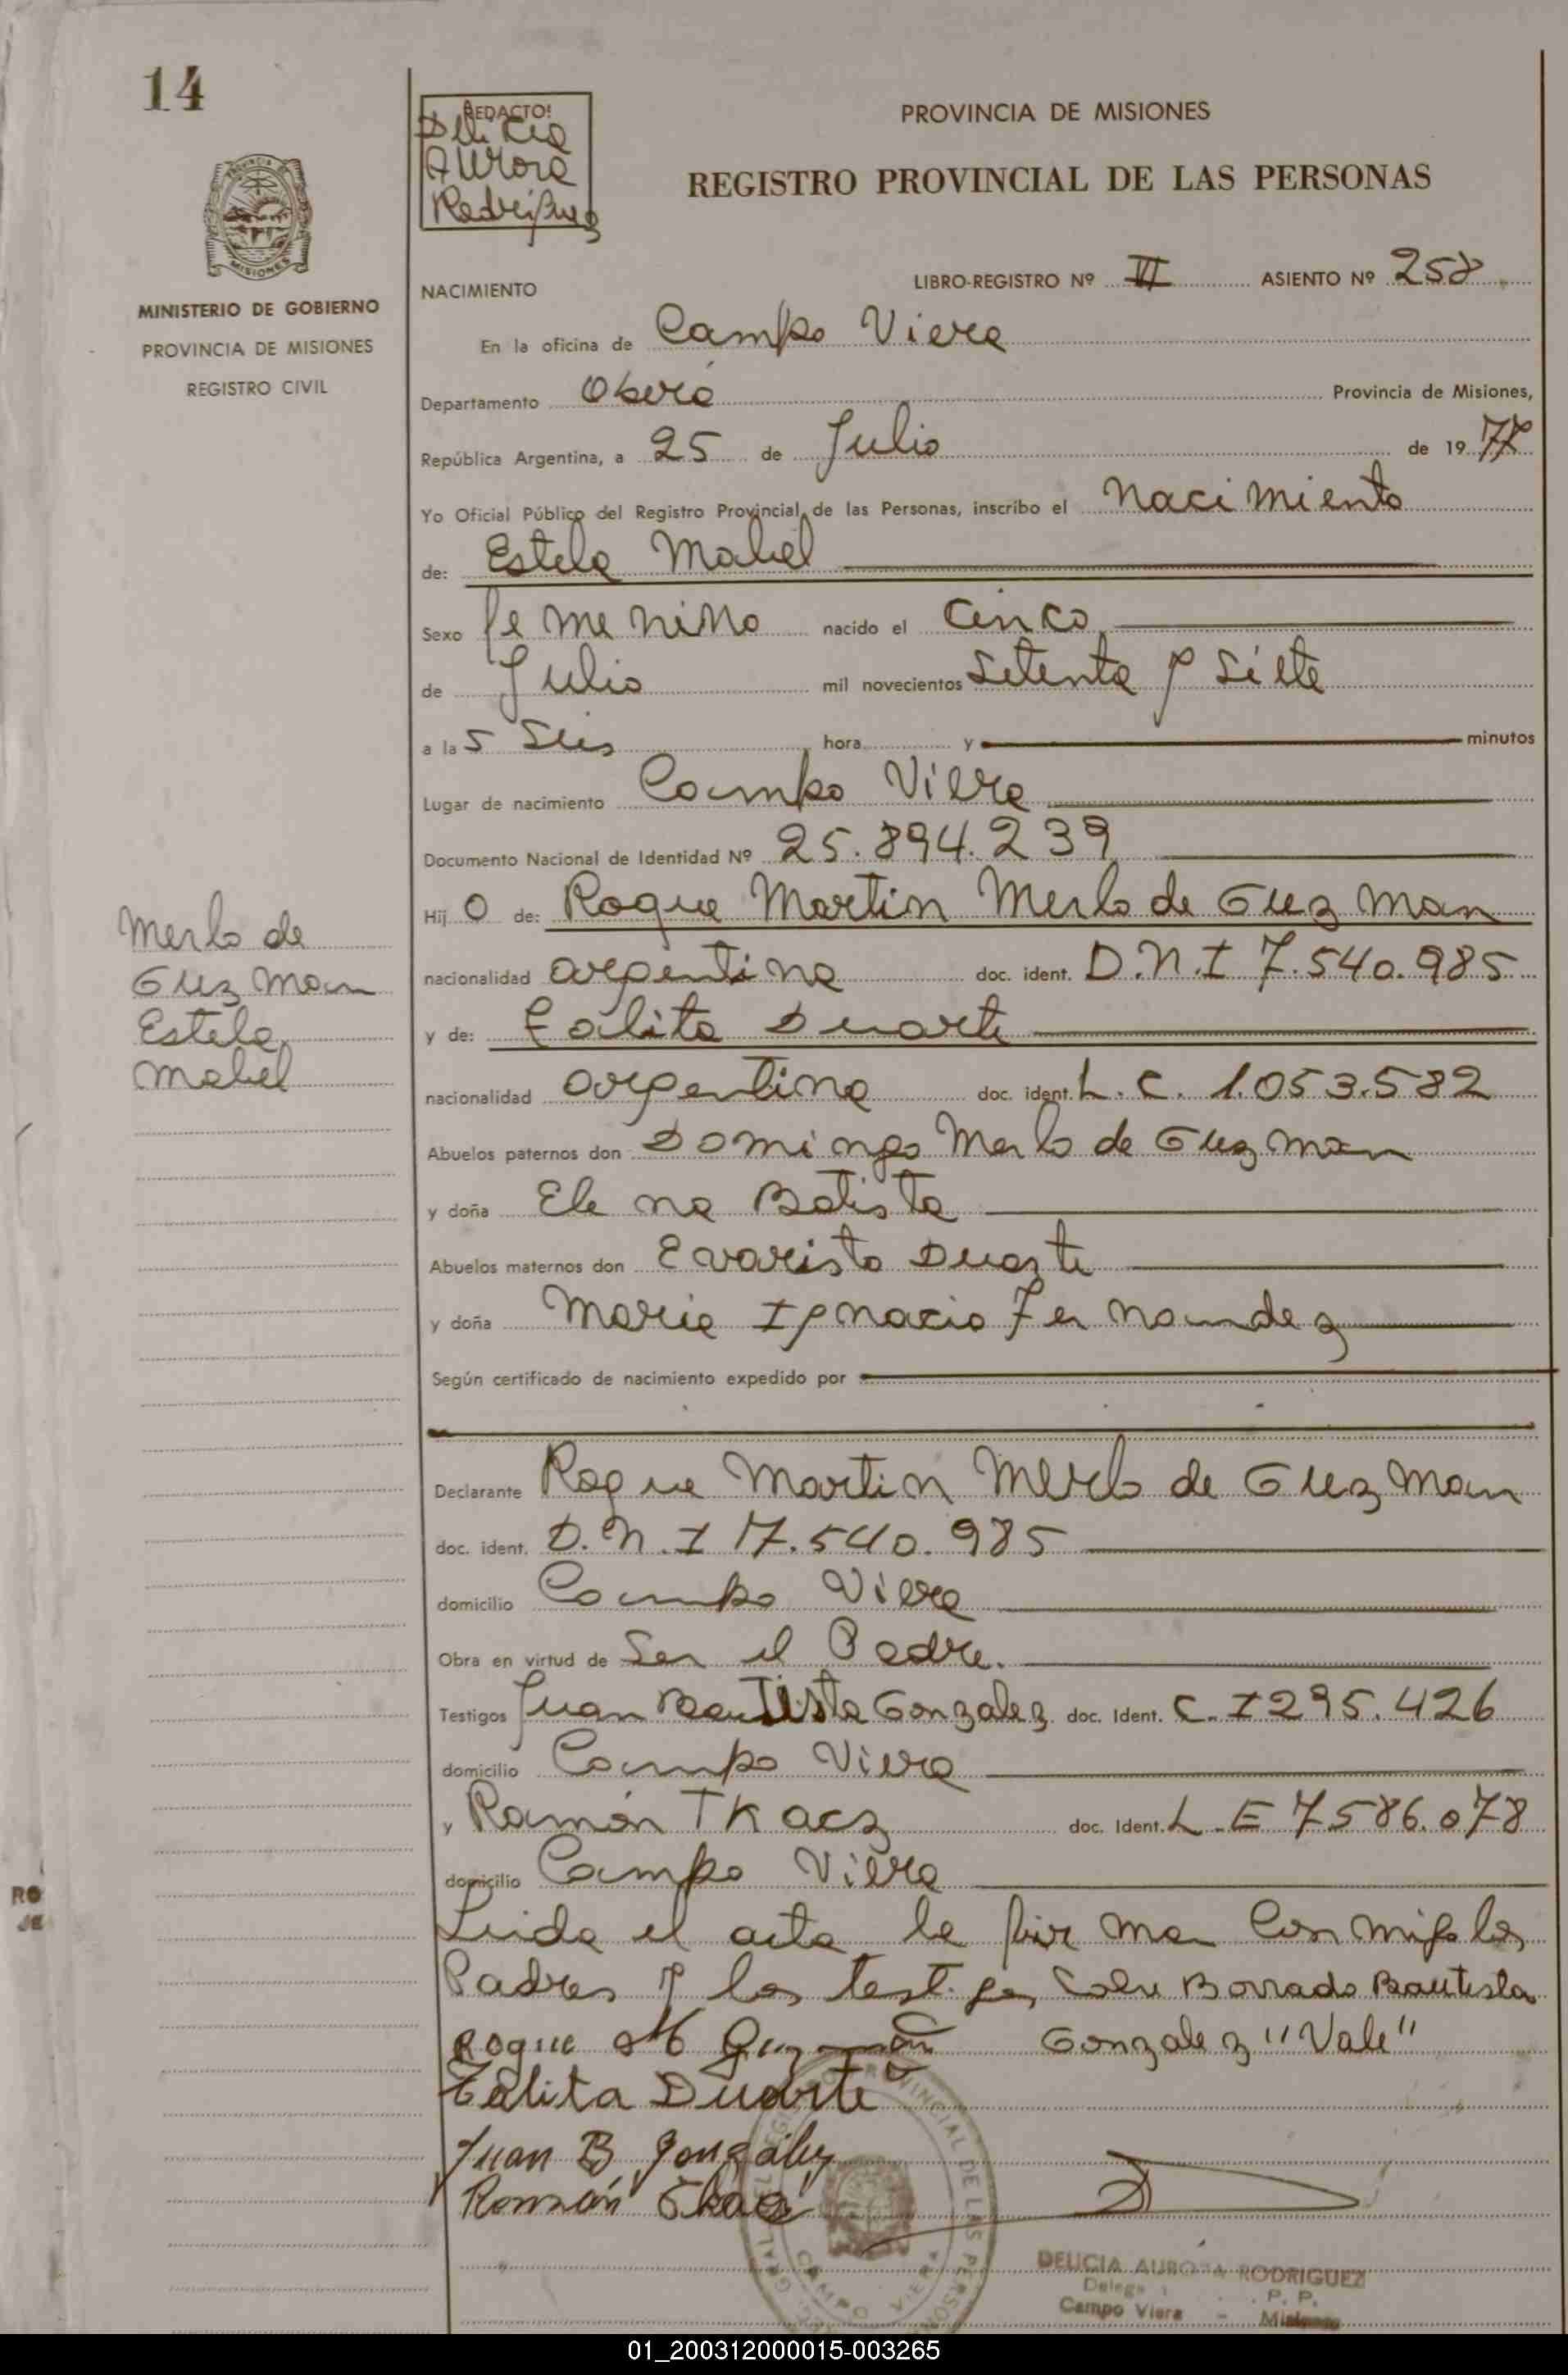 14
REDACTO:
Delicia
Aurora
Rodriguez
PROVINCIA DE MISIONES
REGISTRO PROVINCIAL DE LAS PERSONAS
PROVINCIA
MISIONES
MINISTERIO DE GOBIERNO
PROVINCIA DE MISIONES
REGISTRO CIVIL
NACIMIENTO
LIBRO-REGISTRO Nº VI ASIENTO Nº 258
En la oficina de Campo Viera
Departamento Oberá Provincia de Misiones,
República Argentina, a 25 de Julio de 1977
Yo Oficial Público del Registro Provincial de las Personas, inscribo el nacimiento
de: Estela Mabel
Sexo femenino nacido el cinco
de Julio mil novecientos Setenta y Siete
a las Seis hora y minutos
Lugar de nacimiento Campo Viera
Documento Nacional de Identidad Nº 25.894.239
Hijo de: Roque Martin Merlo de Guzman
nacionalidad argentina doc. ident. D.N.I 7.540.985
y de: Talita Duarte
nacionalidad argentina doc. ident. L.C. 1.053.582
Abuelos paternos don Domingo Merlo de Guzman
y doña Elena Batista
Abuelos maternos don Evaristo Duarte
y doña Maria Ignacia Fernandez
Según certificado de nacimiento expedido por
Merlo de
Guzman
Estela
Mabel
Declarante Roque Martin Merlo de Guzman
doc. ident. D.N.I 7.540.985
domicilio Campo Viera
Obra en virtud de Ser el Padre.
Testigos Juan Bautista Gonzalez doc. Ident. C.I 295.426
domicilio Campo Viera
y Ramón Tkacz doc. Ident. L.E 7586.078
domicilio Campo Viera
Leida el acta la firman conmigo los
Padres y los testigos Sobre Borrado Bautista
Roque M Guzmán Gonzalez "Vale"
Talita Duarte
Juan B Gonzalez
Ramón Tkacz
CAMPO VIERA
DELICIA AURORA RODRIGUEZ
P. P.
Campo Viera - Misiones
RO
01_200312000015-003265